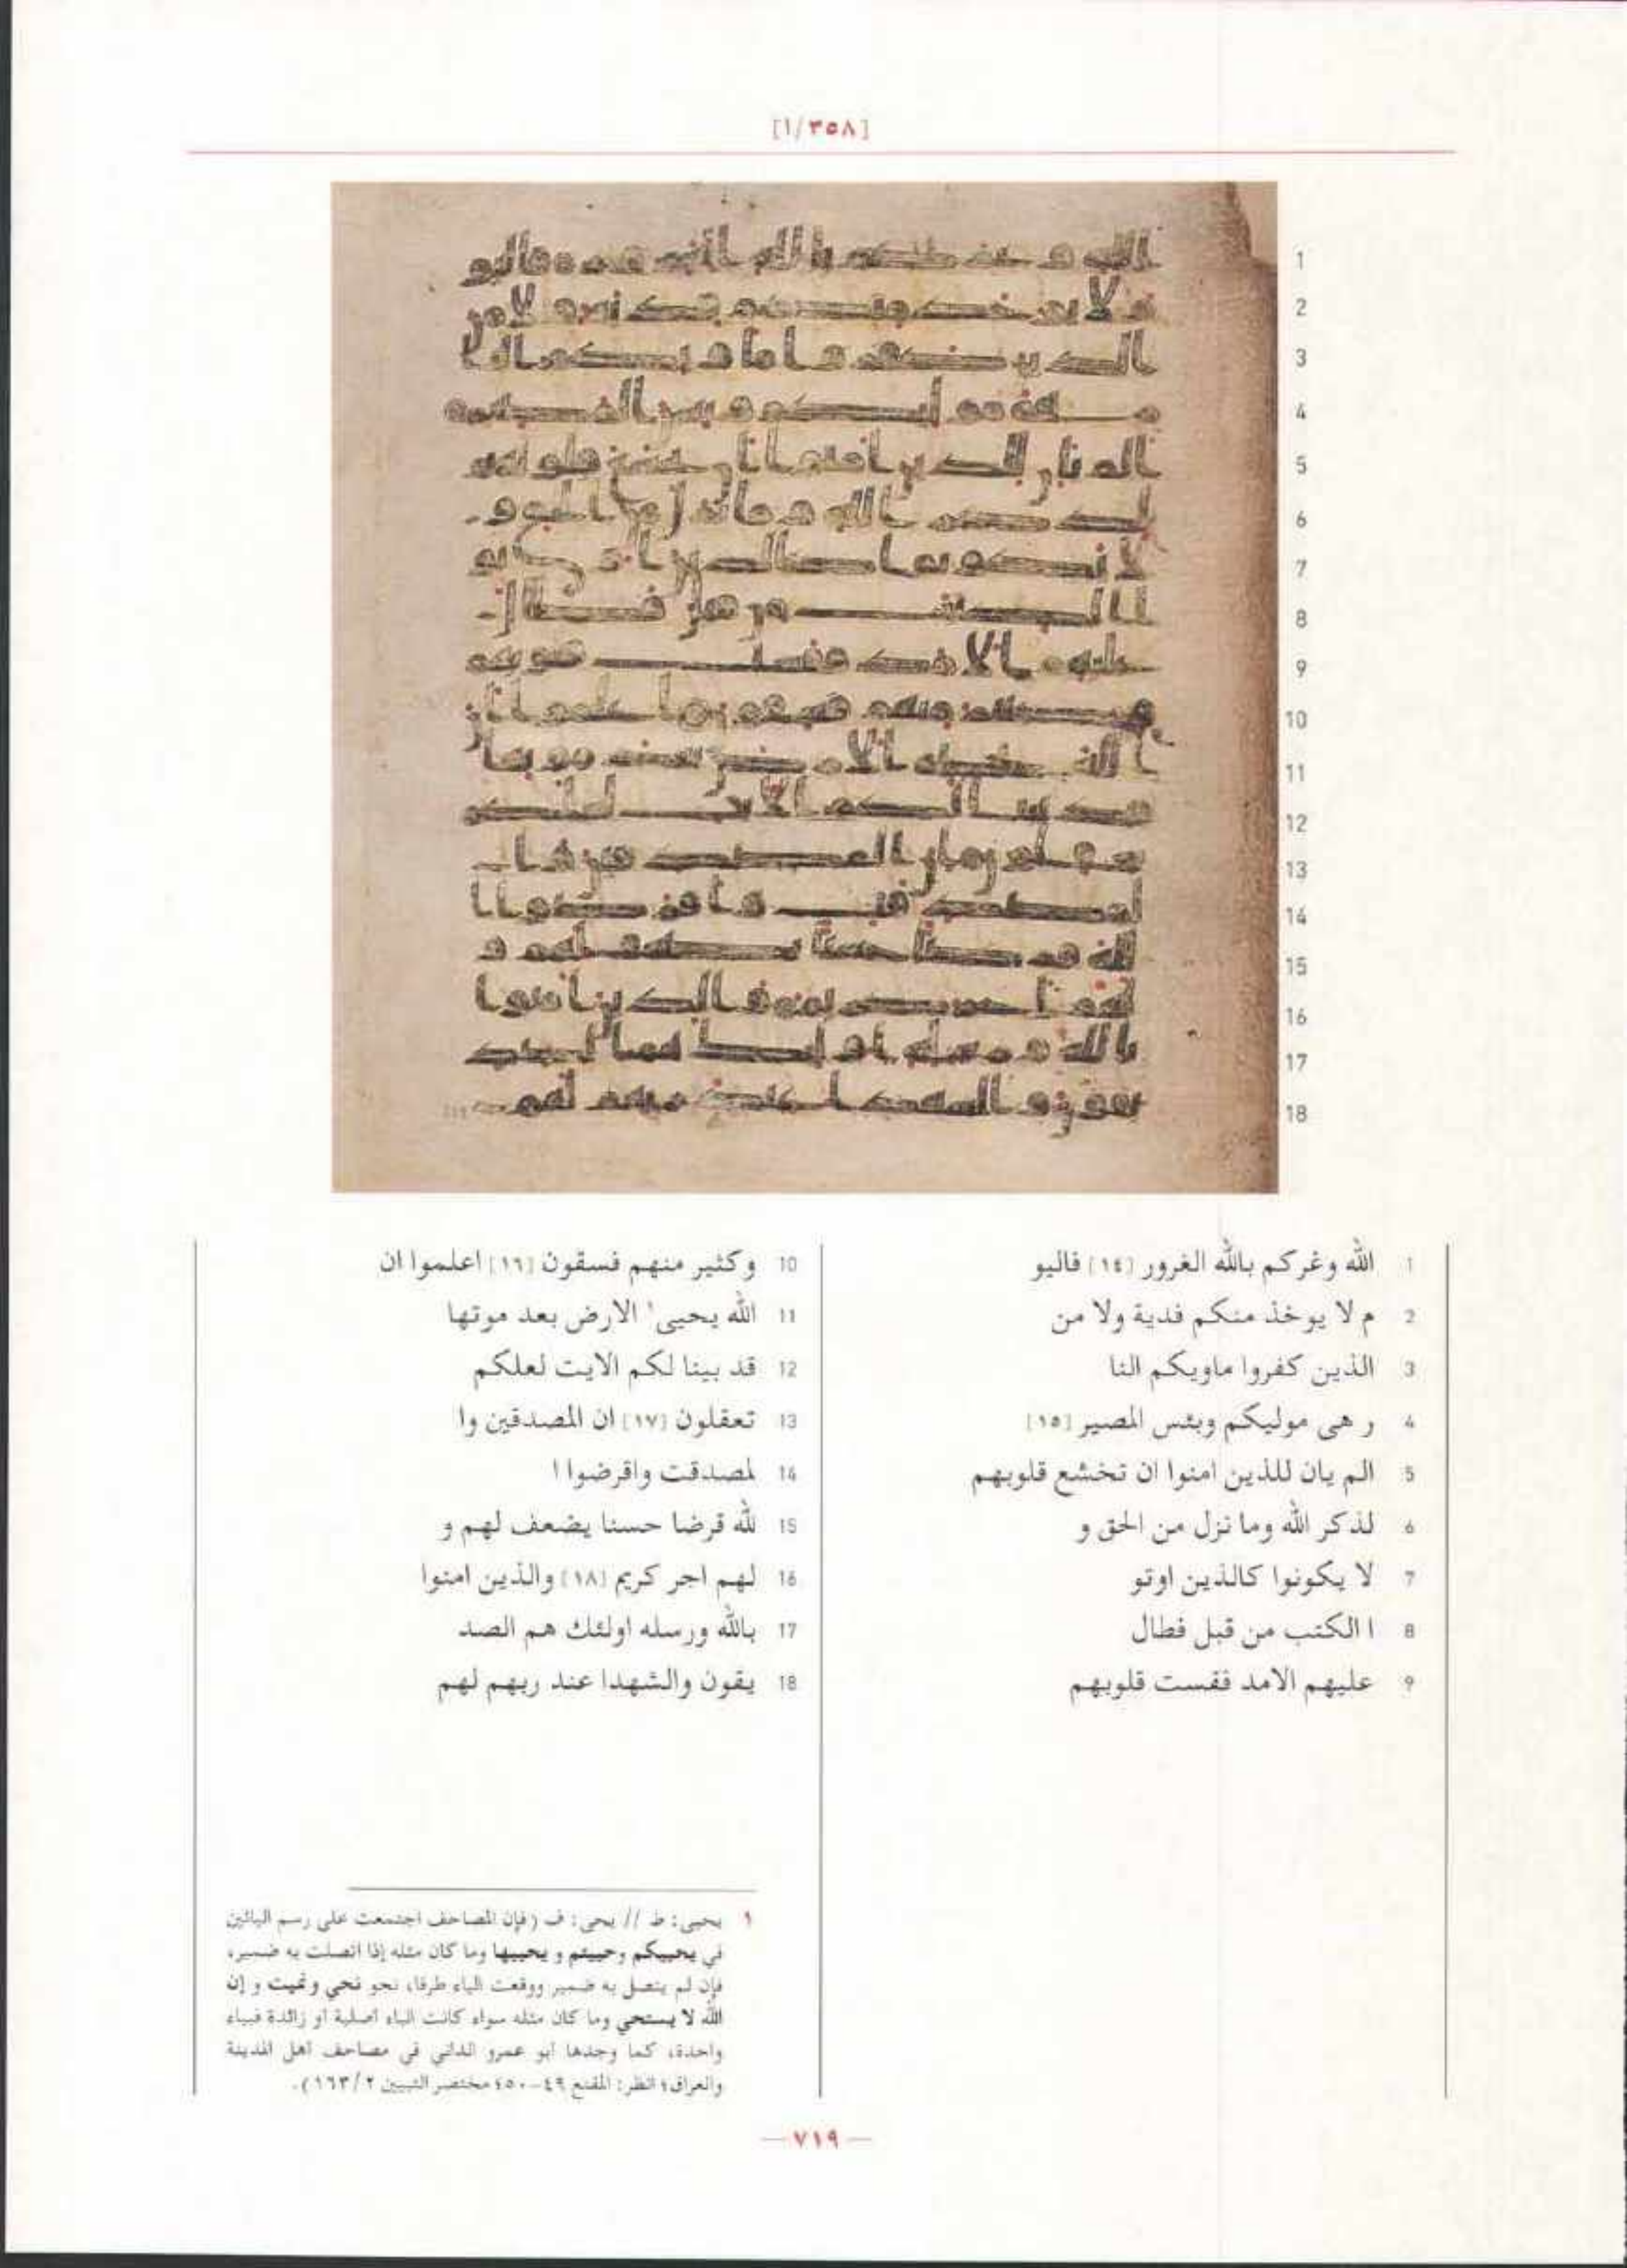 [٣٥٨/١]
1 الله وغركم بالله الغرور [١٤] فاليو
2 م لا يوخذ منكم فدية ولا من
3 الذين كفروا ماويكم النا
4 ر هى موليكم وبئس المصير [١٥]
5 الم يان للذين امنوا ان تخشع قلوبهم
6 لذكر الله وما نزل من الحق و
7 لا يكونوا كالذين اوتو
8 ا الكتب من قبل فطال
9 عليهم الامد فقست قلوبهم
10 وكثير منهم فسقون [١٦] اعلموا ان
11 الله يحيى١ الارض بعد موتها
12 قد بينا لكم الايت لعلكم
13 تعقلون [١٧] ان المصدقين وا
14 لمصدقت واقرضوا ا
15 لله قرضا حسنا يضعف لهم و
16 لهم اجر كريم [١٨] والذين امنوا
17 بالله ورسله اولئك هم الصد
18 يقون والشهدا عند ربهم لهم
١ يحيى: ط // يحى: ف (فإن المصاحف اجتمعت على رسم اليائين
في يحييكم وحييتم و يحييها وما كان مثله إذا اتصلت به ضمير،
فإن لم يتصل به ضمير ووقعت الياء طرفا، نحو نحي ونميت و إن
الله لا يستحي وما كان مثله سواء كانت الياء أصلية أو زائدة فبياء
واحدة، كما وجدها أبو عمرو الداني في مصاحف أهل المدينة
والعراق؛ انظر: المقنع ٤٩-٥٠؛ مختصر التبيين ١٦٣/٢).
— ٧١٩ —